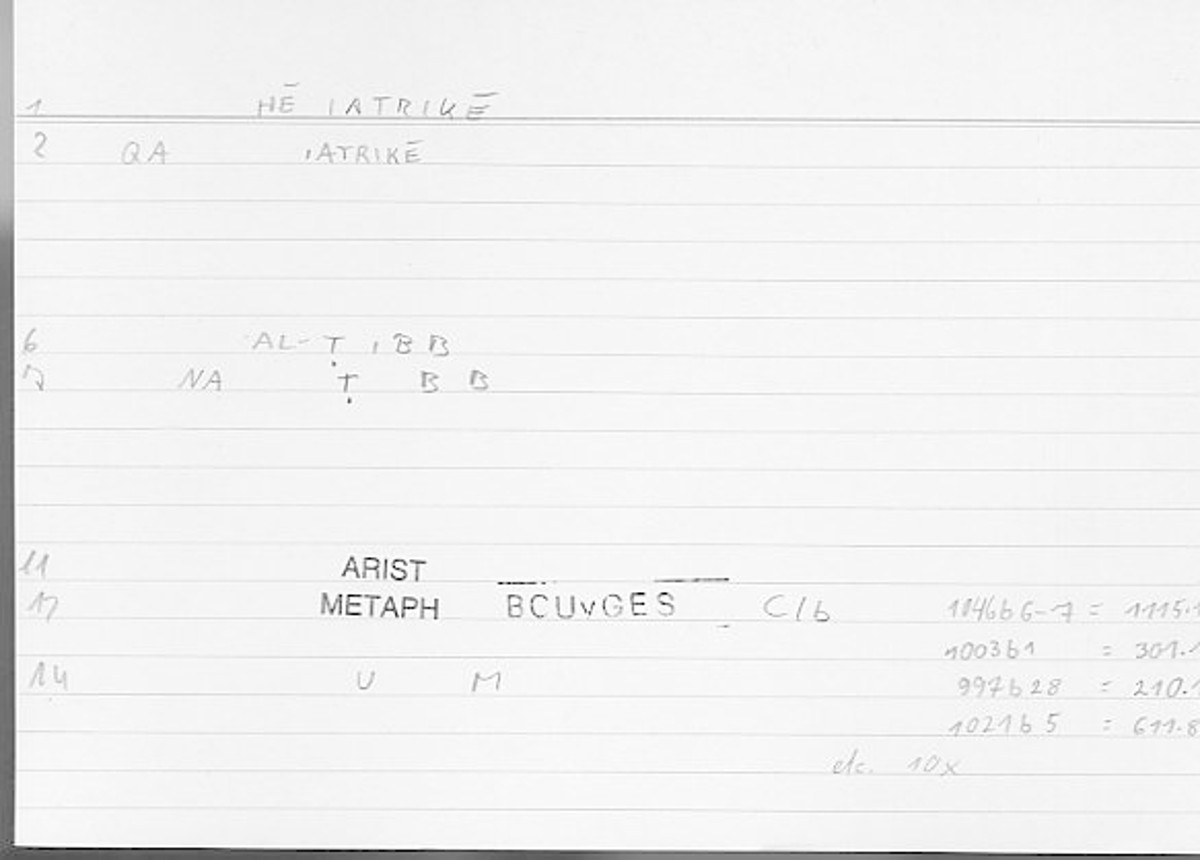 1 HĒ IATRIKĒ
2 QA IATRIKĒ
6 AL-Ṭ IBB
7 NA Ṭ B B
11 ARIST
12 METAPH BOUYGES C/b 1046b6-7 = 1115.1
1003b1 = 301.1
997b28 = 210.1
14 U M
1021b5 = 611.8
etc. 10x